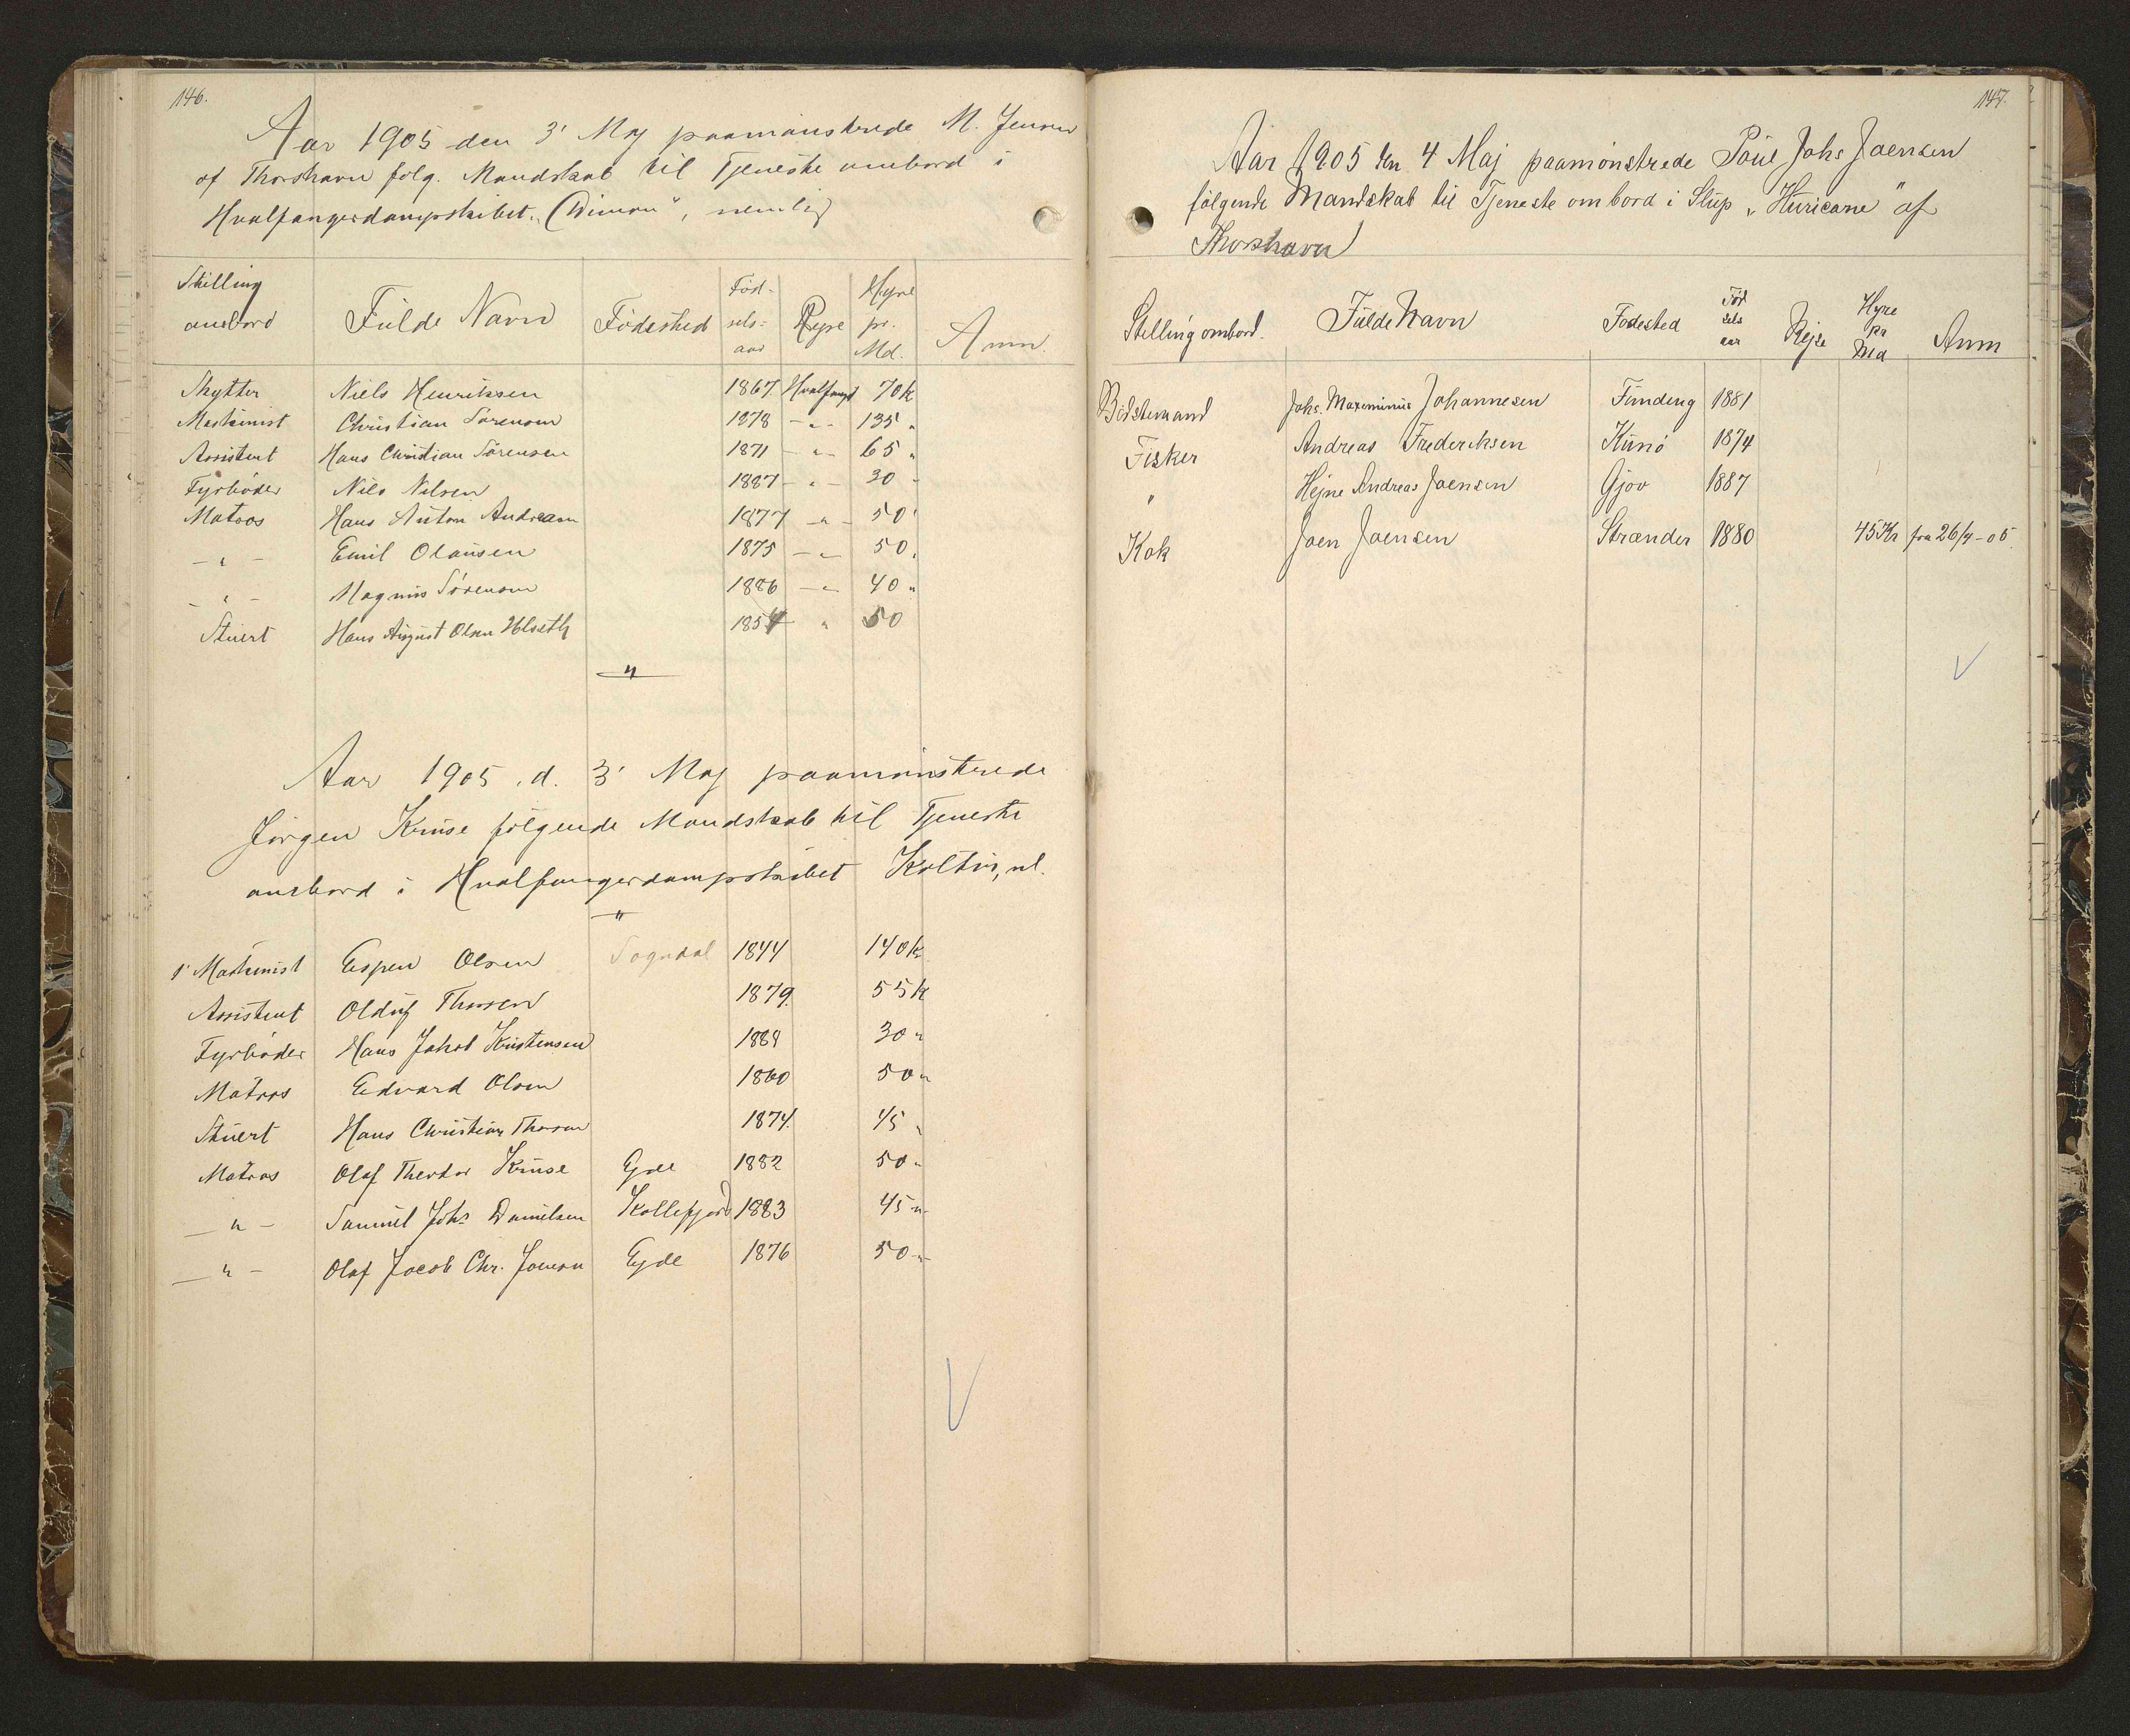 146.
Aar 1905 den 3' Maj paamønstrede M. Jensen
af Thorshavn følg. Mandskab til Tjeneste ombord i
Hvalfangerdampskibet „Dimon“, nemlig
Stilling ombord Fulde Navn Födested Födselsaar Rejse Hyre pr. Md. Anm.
Skytter Niels Henriksen 1867 Hvalfangst 70 k
Maskinist Christian Sörensen 1878 -"- 135 "
Assistent Hans Christian Sörensen 1871 -"- 65 "
Fyrböder Nils Nilsen 1887 -"- 30 -
Matros Hans Anton Andreasen 1877 -"- 50 '
-"- Emil Olausen 1875 -"- 50 "
-"- Magnus Sörensen 1886 -"- 40 "
Stuert Hans August Olsen 1854 " 50
"
Aar 1905 . d. 3' Maj paamönstrede
Jörgen Kruse fölgende Mandskab til Tjeneste
ombord i Hvalfangerdampskibet Koltur, nl.
"
1' Maskinist Espen Olsen Sogndal 1844 140 k
Assistent Thorsen 1879. 55 k
Fyrböder Hans Jakob Kristensen 1888 30 "
Matros Edvard Olsen 1860 50 "
Stuert Hans Christian Thorsen 1874. 45 "
Matros Olaf Theodor Kruse Ejde 1882 50 "
-"- Samuel Johs Danielsen Kollefjord 1883 45 "
-"- Olaf Jacob Chr. Joensen Ejde 1876 50 "
147.
Aar 1905 den 4 Maj paamönstrede Poul Johs Joensen
følgende Mandskab til Tjeneste ombord i Slup „Huricane“ af
Thorshavn
Stelling ombord. Fulde Navn Fødested Fødselsaar Rejse Hyre pr Md Anm
Bedstemand Johs. Maximinus Johannesen Funding 1881
Fisker Andreas Frederiksen Kunö 1874
" Hejne Andreas Joensen Gjov 1887
Kok Joen Joensen Strænder 1880 45 Kr fra 26/4-05